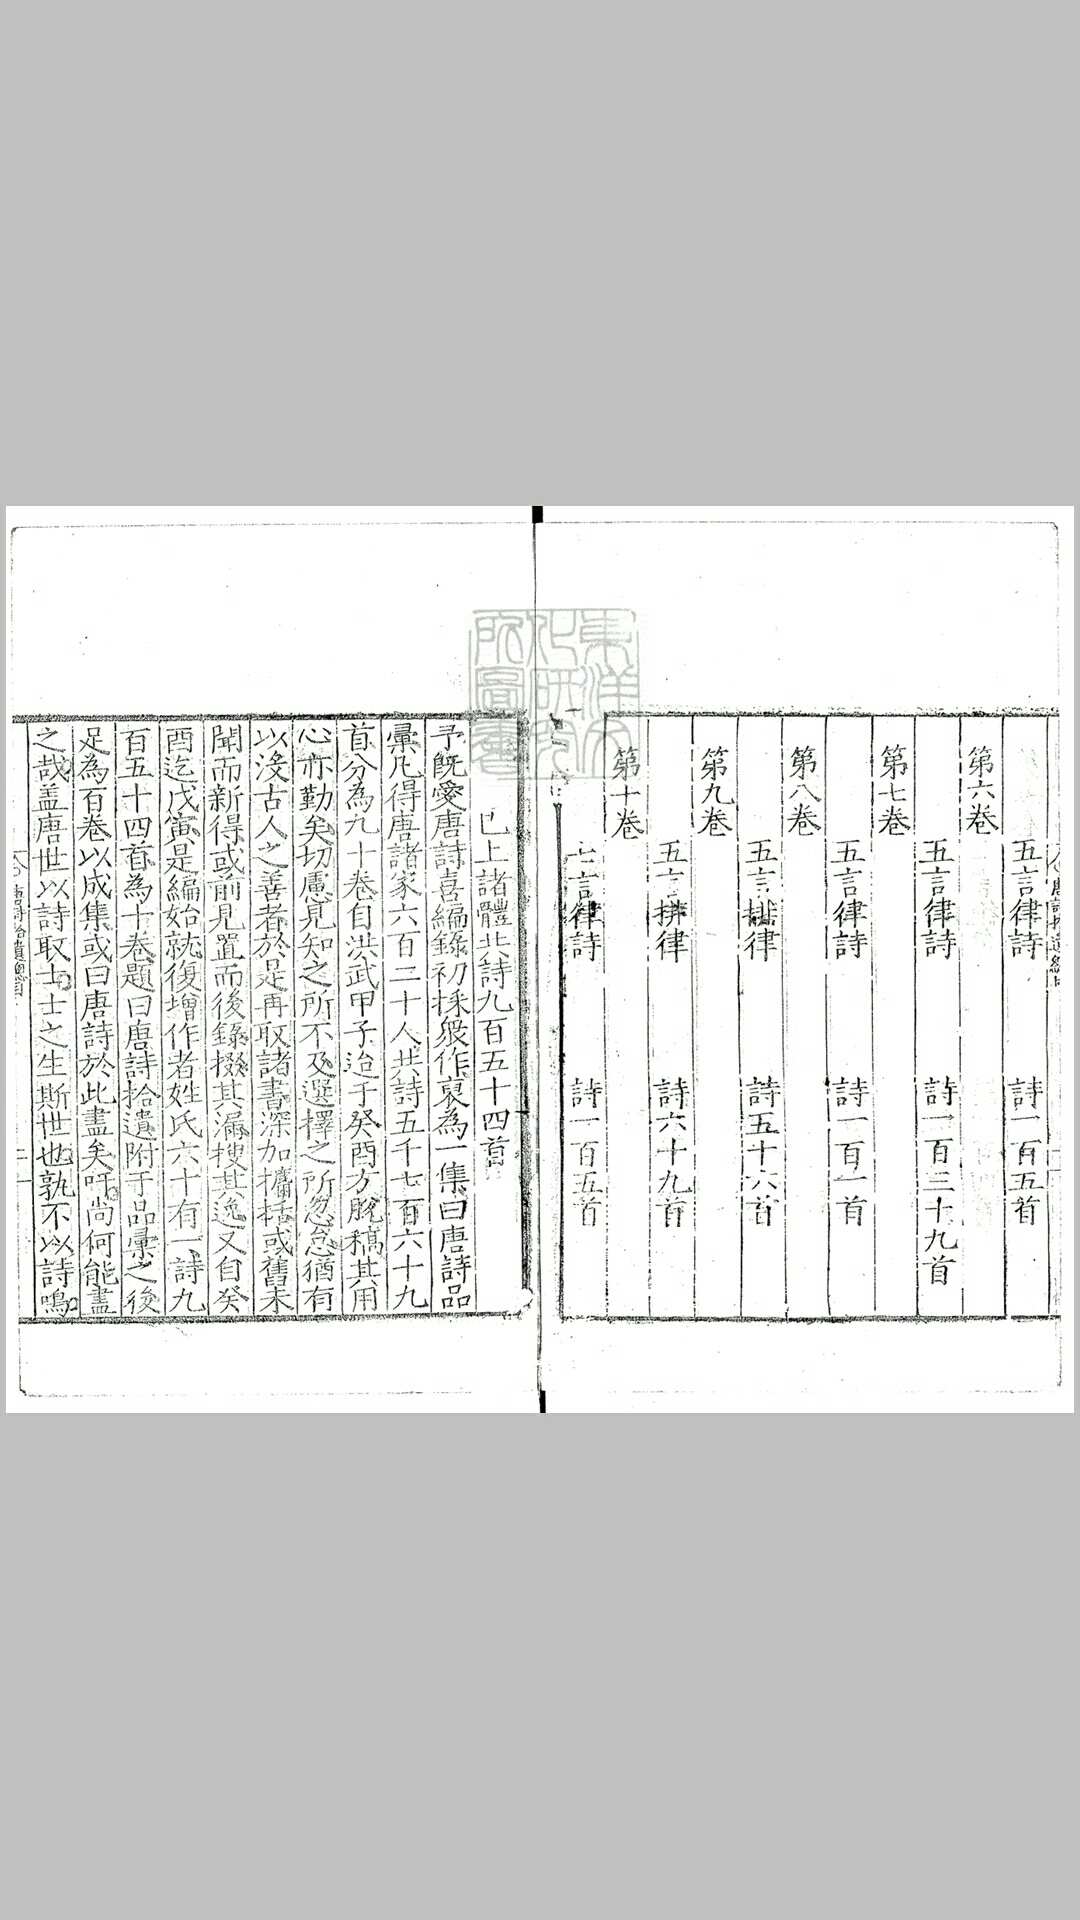 五言律詩 詩一百五首
第六卷
五言律詩 詩一百三十九首
第七卷
五言律詩 詩一百一首
第八卷
五言排律 詩五十六首
第九卷
五言排律 詩六十九首
第十卷
七言律詩 詩一百五首
東洋文
化研究
所圖書
已上諸體共詩九百五十四首
予旣愛唐詩喜編錄初採衆作裒為一集曰唐詩品
彙凡得唐諸家六百二十人共詩五千七百六十九
首分為九十卷自洪武甲子迨于癸酉方脫稿其用
心亦勤矣切慮見知之所不及選擇之所忽怠猶有
以沒古人之善者於是再取諸書深加攟括或舊未
聞而新得或前見置而後錄掇其漏搜其逸又自癸
酉迄戊寅是編始就復增作者姓氏六十有一詩九
百五十四首為十卷題曰唐詩拾遺附于品彙之後
足為百卷以成集或曰唐詩於此盡矣吁尚何能盡
之哉盖唐世以詩取士士之生斯世也孰不以詩鳴
唐詩拾遺總目